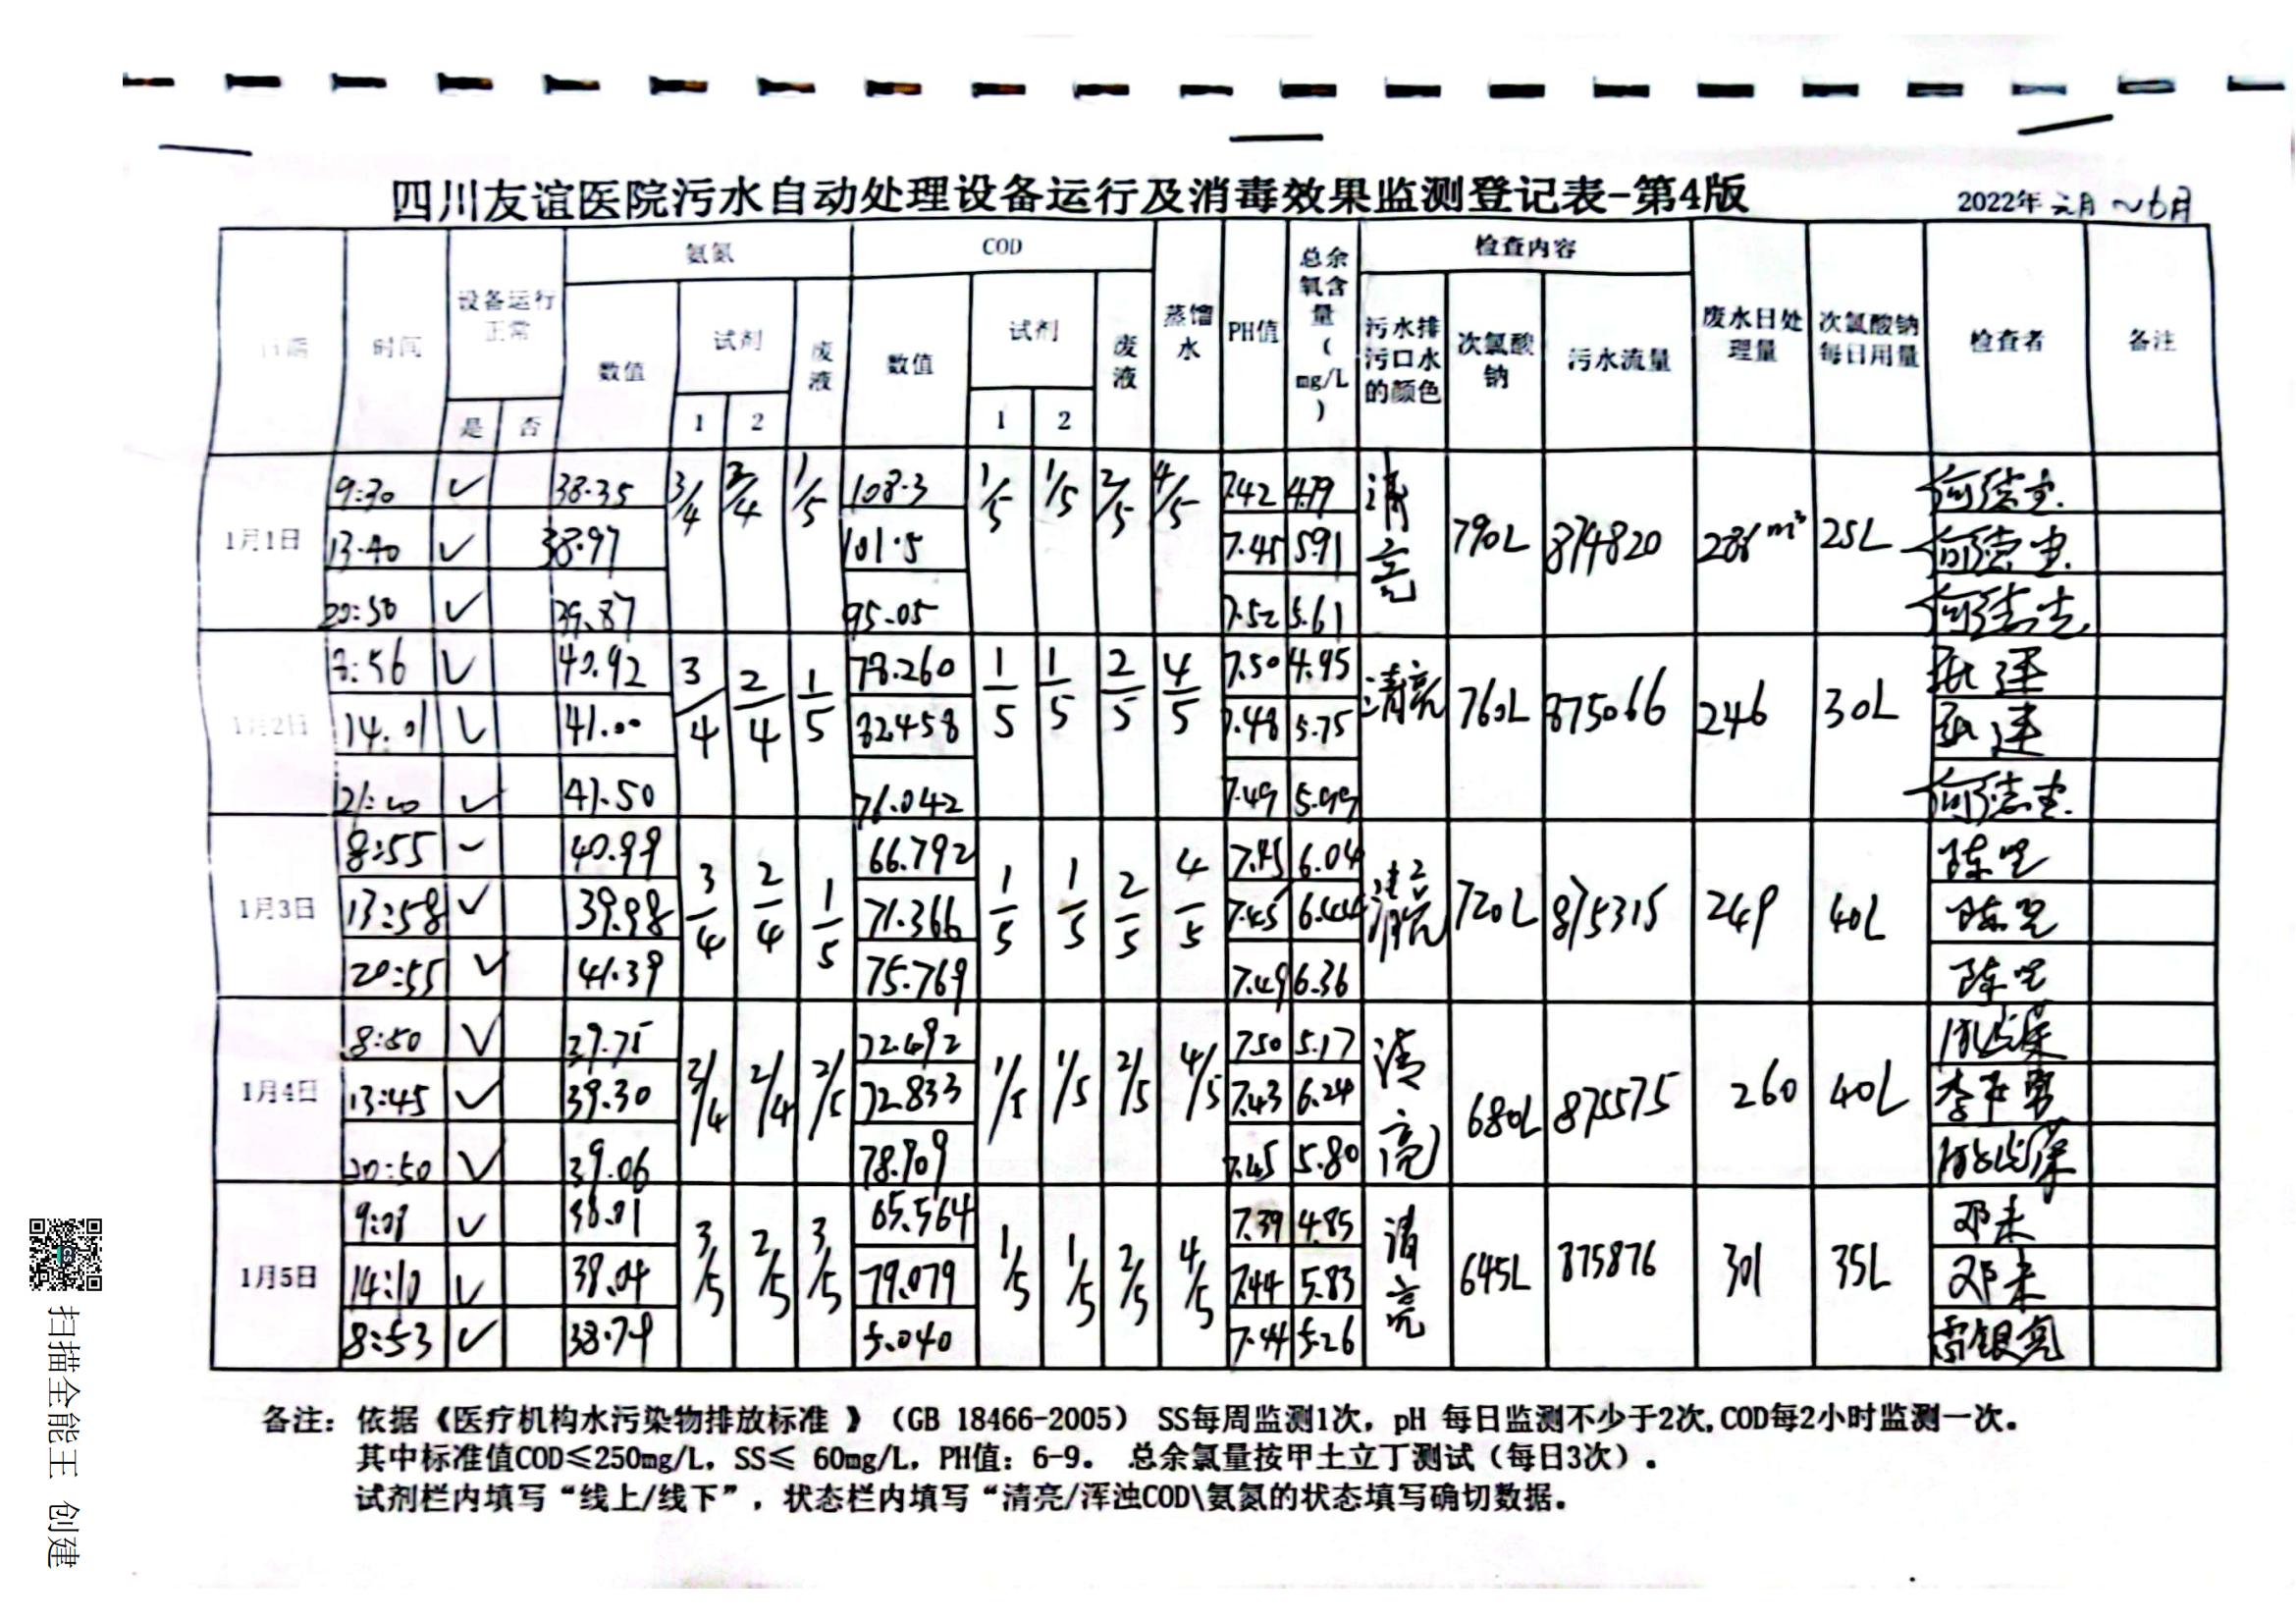 四川友谊医院污水自动处理设备运行及消毒效果监测登记表-第4版
2022年 元月 ~6月
日期 时间 设备运行正常 是 否 氨氮 数值 试剂 1 2 废液 COD 数值 试剂 1 2 废液 蒸馏水 PH值 总余氧含量(mg/L) 检查内容 污水排污口水的颜色 次氯酸钠 污水流量 废水日处理量 次氯酸钠每日用量 检查者 备注
1月1日 9:30 ✓ 38.35 3/4 2/4 1/5 108.3 1/5 1/5 2/5 4/5 7.42 4.79 清亮 790L 874820 286m³ 25L
13:40 ✓ 38.97 101.5 7.45 5.91
20:50 ✓ 39.87 95.05 7.52 5.61
1月2日 8:56 ✓ 40.92 3/4 2/4 1/5 78.260 1/5 1/5 2/5 4/5 7.50 4.95 清亮 760L 875066 246 30L
14:01 ✓ 41.00 82.458 7.48 5.75
21:00 ✓ 41.50 76.042 7.49 5.99
1月3日 8:55 ✓ 40.99 3/4 2/4 1/5 66.792 1/5 1/5 2/5 4/5 7.45 6.04 清亮 720L 875315 249 40L
13:58 ✓ 39.98 71.366 7.45 6.44
20:55 ✓ 41.39 75.769 7.49 6.36
1月4日 8:50 ✓ 39.75 3/4 2/4 2/5 72.492 1/5 1/5 2/5 4/5 7.50 5.17 清亮 680L 875575 260 40L
13:45 ✓ 39.30 72.833 7.43 6.24
20:50 ✓ 39.06 78.909 7.45 5.80
1月5日 9:08 ✓ 38.01 3/5 2/5 3/5 65.564 1/5 1/5 2/5 4/5 7.39 4.85 清亮 645L 875876 301 35L 邓未
14:10 ✓ 38.04 79.079 7.44 5.83 邓未
8:53 ✓ 38.79 5.040 7.44 5.26 雷银亮
备注: 依据《医疗机构水污染物排放标准 》（GB 18466-2005） SS每周监测1次, pH 每日监测不少于2次,COD每2小时监测一次。
其中标准值COD≤250mg/L, SS≤ 60mg/L, PH值: 6-9。 总余氯量按甲土立丁测试（每日3次）.
试剂栏内填写“线上/线下”, 状态栏内填写“清亮/浑浊COD\氨氮的状态填写确切数据。
扫描全能王 创建